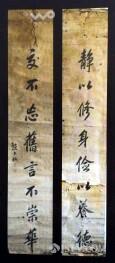 靜以修身儉以養德
交不忘舊言不崇華